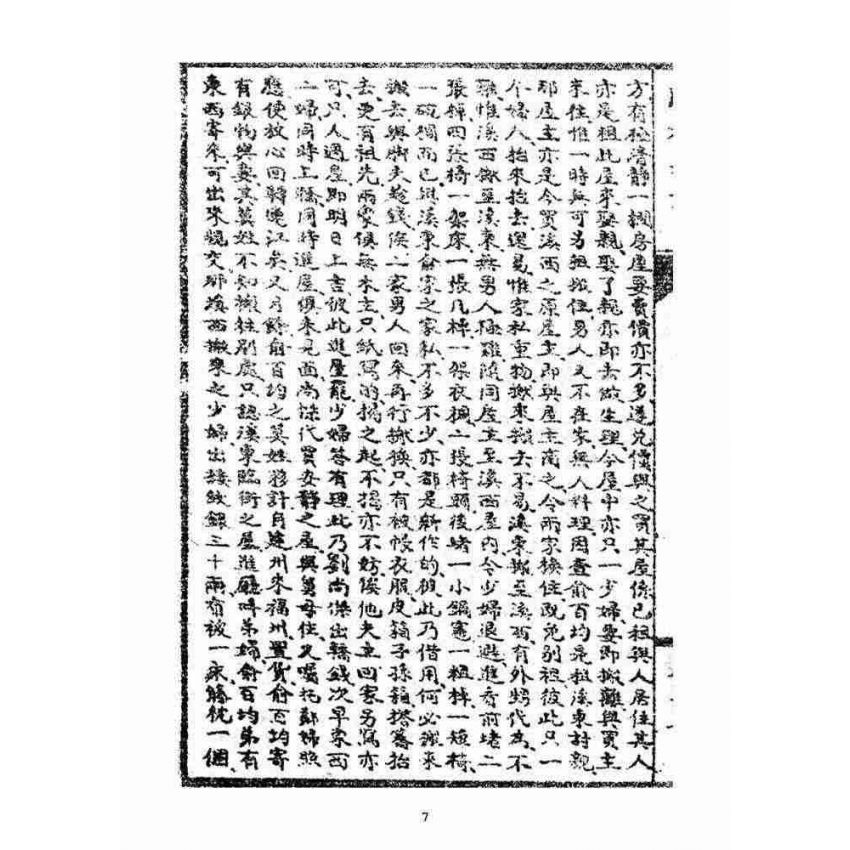 方有極清靜一棚房屋要賣價亦不多遂兌價與之買其屋係已租與人居住其人
亦是租此屋來娶親娶了親亦即去做生理今屋中亦只一少婦要即搬離與買主
來住惟一時無可另租搬住男人又不在家無人料理因查俞百均是租溪東村親
那屋主亦是今買溪西之原屋主即與屋主商之令兩家換住既免別租彼此只一
个婦人抬來抬去還易惟家私重物搬來搬去不易溪東搬至溪西有外甥代為不
難惟溪西搬至溪東無男人極難隨同屋主至溪西屋內令少婦退避進看前堵二
張棹四張椅一架床一張几棹一架衣櫥二張椅頭後堵一小鍋灶一粗棹一短椅
一砍櫥而已與溪東俞家之家私不多不少亦都是新作的彼此乃借用何必搬來
搬去與脚夫趁錢俟二家男人回來再行搬換只有被帳衣服皮箱子孫籠搭舊抬
去更有祖先兩家俱無木主只紙寫的揭之起不揭亦不妨俟他夫主回家另寫亦
可只人過屋即明日上吉彼此進屋罷少婦答有理此乃劉尚傑出轎錢次早東西
二婦同時上轎同時進屋俱未見面尚傑代買安靜之屋與舅母住又囑托鄰婦照
應便放心回轉連江矣又月餘俞百均之莫姓夥計自建州來福州置貨俞百均寄
有銀物與妻其莫姓不知搬往別處只認溪東臨街之屋進廳呼弟婦俞百均弟有
東西寄來可出來親交那溪西搬來之少婦出接紋銀三十兩布被一床綿毯一個
7